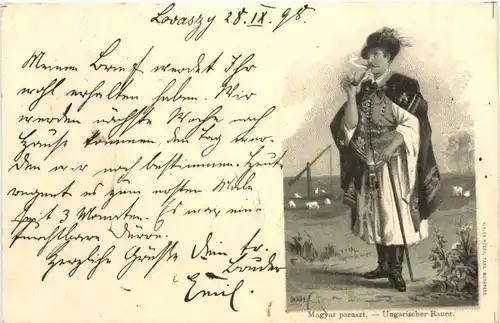 Lovaszy 28.IX.98.
Meinen Brief werdet Ihr
wohl erhalten haben. Wir
werden nächste Woche nach
Hause kommen, den Tag wer-
den wir noch bestimmen. Heute
regnet es zum ersten Male
seit 3 Monaten. Es war eine
furchtbare Dürre.
Herzliche Grüsse Dein tr.
Bruder
Emil.
Magyar paraszt. — Ungarischer Bauer.